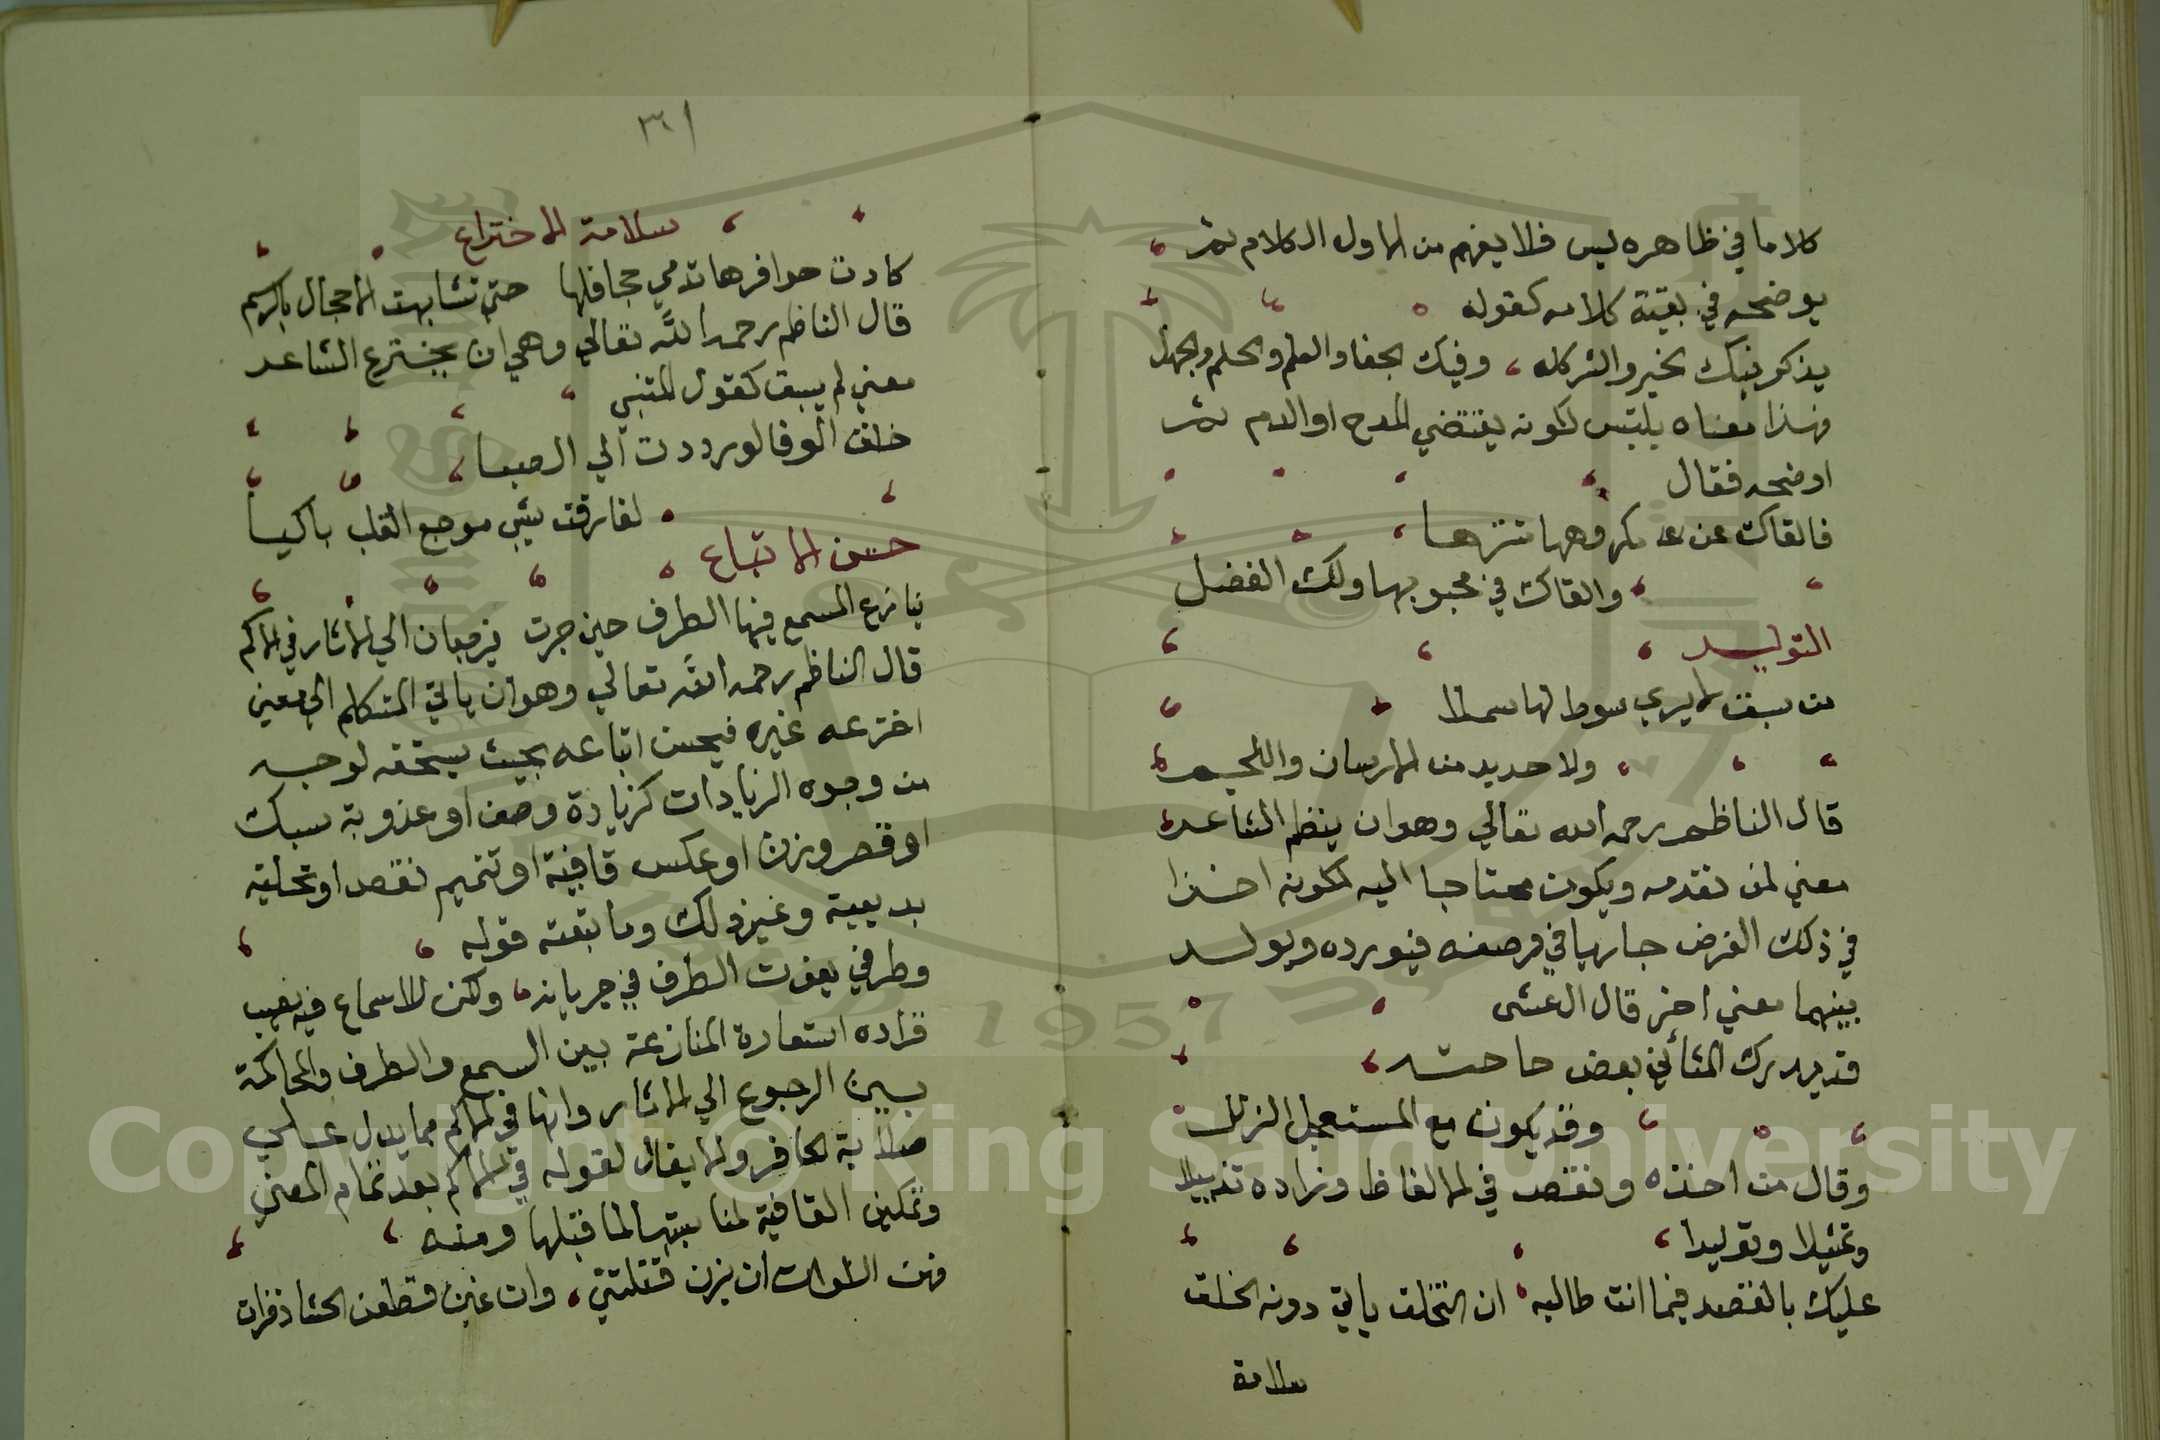 كلاما في ظاهره لبس فلا يفهم من الاول الكلام ثم
يوضحه في بقية كلامه كقوله
يذكرنيك الخير والشر كله وفيك الجفا والعلم والحلم والجهل
فهذا معناه يلتبس لكونه يقتضي المدح او الذم ثم
اوضحه فقال
فالقاك عن مكروهها متنزها
والقاك في محبوبها ولك الفضل
التوليد
من سبق لا يرى سوط لها سملا
ولا حديد من الارسان واللجم
قال الناظم رحمه الله تعالى وهو ان ينظم الشاعر
معني لمن تقدمه ويكون محتاجا اليه لكونه اخذا
في ذلك الغرض جاريا في وصفه فيورده ويولد
بينهما معني اخر قال الاعشى
قد يدرك المتأني بعض حاجته
وقد يكون مع المستعجل الزلل
وقال من اخذه ونقص في الالفاظ وزاده تذييلا
وتمثيلا وتوليدا
عليك بالقصد فيما انت طالبه ان التخلق ياتي دونه الخلق
سلامة
٣٦١
سلامة الاختراع
كادت حوافرها تدمي جحافلها حتى تشابهت الاحجال بالرسم
قال الناظم رحمه الله تعالي وهي ان يخترع الشاعر
معني لم يسبق كقول المتنبي
خلقت الوفا لو رددت الي الصبا
لفارقت شيبي موجع القلب باكيا
حسن الاتباع
ينازع السمع فيها الطرف حين جرت فيرجعان الي الاثار في الاكم
قال الناظم رحمه الله تعالي وهو ان ياتي المتكلم الي معني
اخترعه غيره فيحسن اتباعه بحيث يستحقه لوجه
من وجوه الزيادات كزيادة وصف او عذوبة سبك
او قصر وزن او عكس قافية او تتميم نقص او تحلية
بديعية وغير ذلك وما تبعته قوله
وطرفي يفوت الطرف في جريانه ولكن للاسماع فيه نصيب
فزاده استعارة المنازعة بين السمع والطرف والمحاكمة
بين الرجوع الي الاثار وانها في الاكم مما يدل علي
صلابة الحافر ولا يقال لقوله في الاكم بعد تمام المعني
وتمكين القافية لمناسبتها لما قبلها ومنه
فهن اللوات ان برزن قتلنني وان غبن قطعن الحشا زفرات